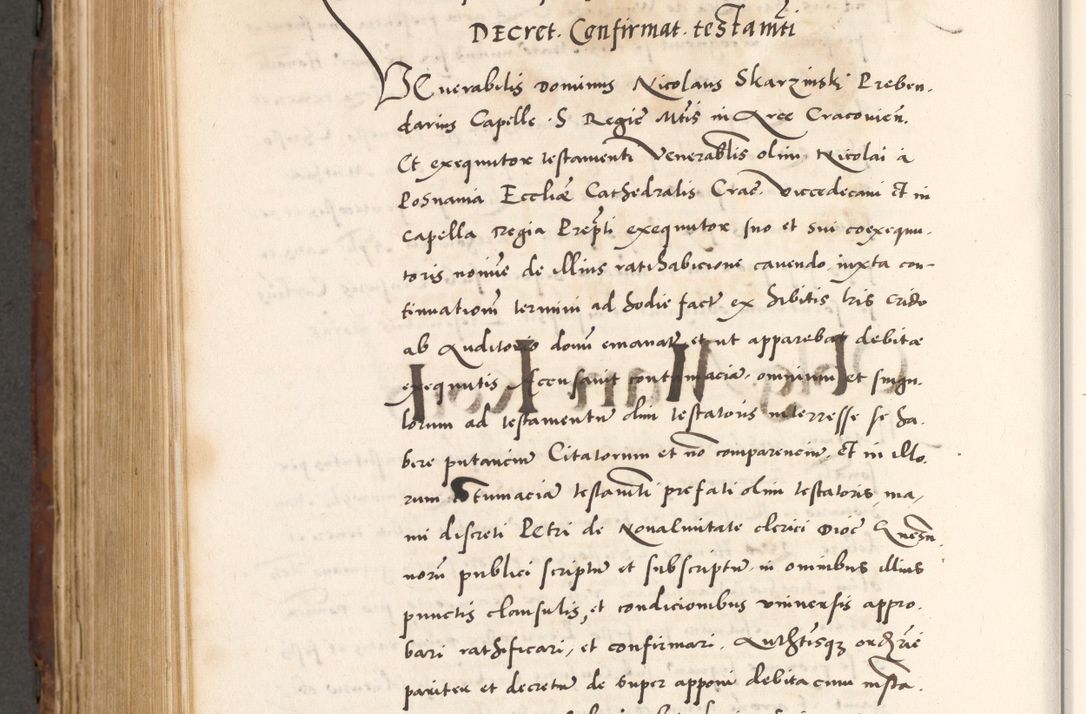 DECret. Confirmat. testamti
VEnerabilis Dominus Nicolaus Skarzinski Preben.
darius Capelle S Regie Mtis in Arce Cracovien.
Et exequutor testamenti Venerablis olim Nicolai a
Posnania Eccliae Cathedralis Crac. Vicedecani Et in
Capella regia Prepti exequutor suo et sui coexequu.
toris nomine de illius ratihabicione cavendo iuxta con-
tinuationem termini ad hodie fact ex hibitis lris Crido
ab Auditorio domi emanat et ut apparebat debitae
exequutis Accusavit contumacia omnium et singu.
lorum ad testamentu dni testatoris interresse se ha.
bere putanciu Citatorum et no compareneiu. Et in illo.
rum Cotumacia testamti prefati olim testatoris, ma,
nu discreti Petri de Novalmitate clerici Dioc Gnesn
noru publici scriptu et subscriptu in omnibus illius
punctis clausulis, et condicionibus universis appro.
bari rathificari, et confirmari. Authtisq ordrie
pariter et decretu de super apponi debita cum insta.